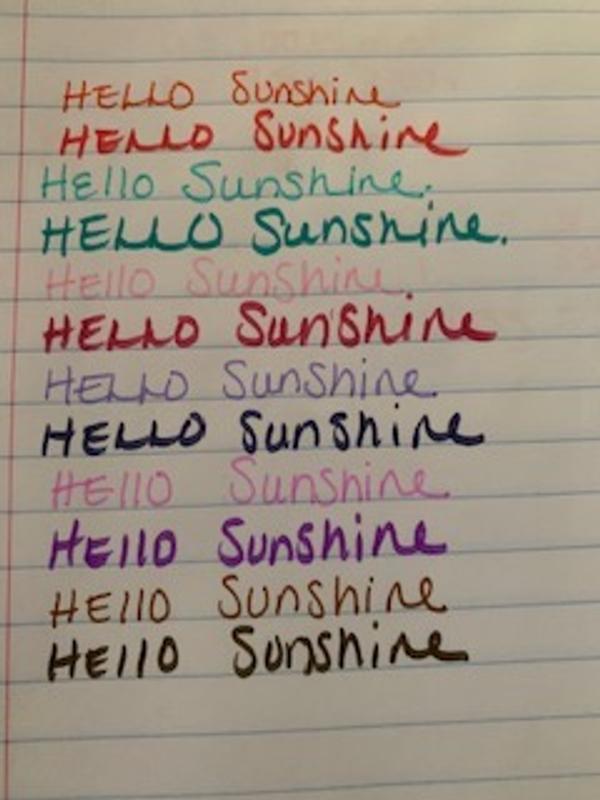 HELLO Sunshine
HELLO Sunshine
Hello Sunshine.
HELLO Sunshine.
Hello Sunshine.
HELLO Sunshine
HELLO Sunshine.
HELLO Sunshine
HEllO Sunshine.
HEllO Sunshine
HEllO Sunshine
HEllO Sunshine